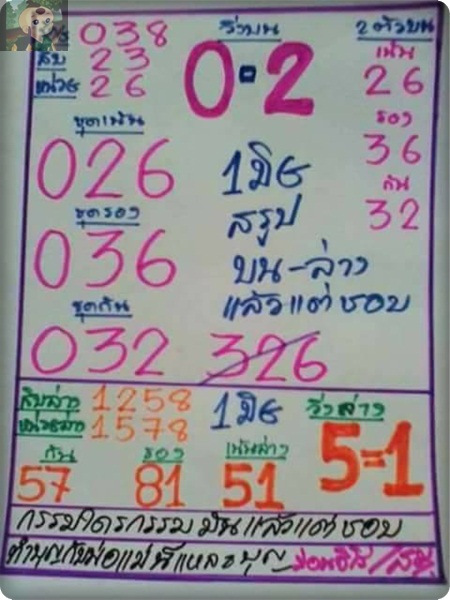 038 วิ่งบน 2ตัวบน
สิบ 23 0=2 เน้น
หน่วย 26 26
ชุดเน้น รอง
026 1มิย 36
สรุป กัน
ชุดรอง 32
036 บน-ล่าง
แล้วแต่ชอบ
ชุดกัน
032 326
สิบล่าง 1258 1มิย วิ่งล่าง
หน่วยล่าง 1578 5=1
กัน รอง เน้นล่าง
57 81 51
กรรมใครกรรมมันแล้วแต่ชอบ
ทำบุญกับพ่อแม่นี่แหละบุญ